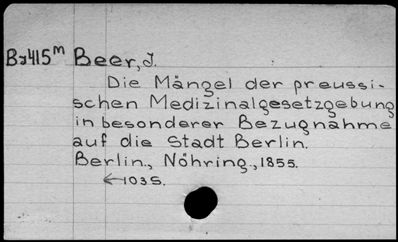 Bz415m Beer, J.
Die Mängel der preussi-
schen Medizinalgesetzgebung
in besonderer Bezugnahme
auf die Stadt Berlin.
Berlin., Nöhring., 1855.
←103S.